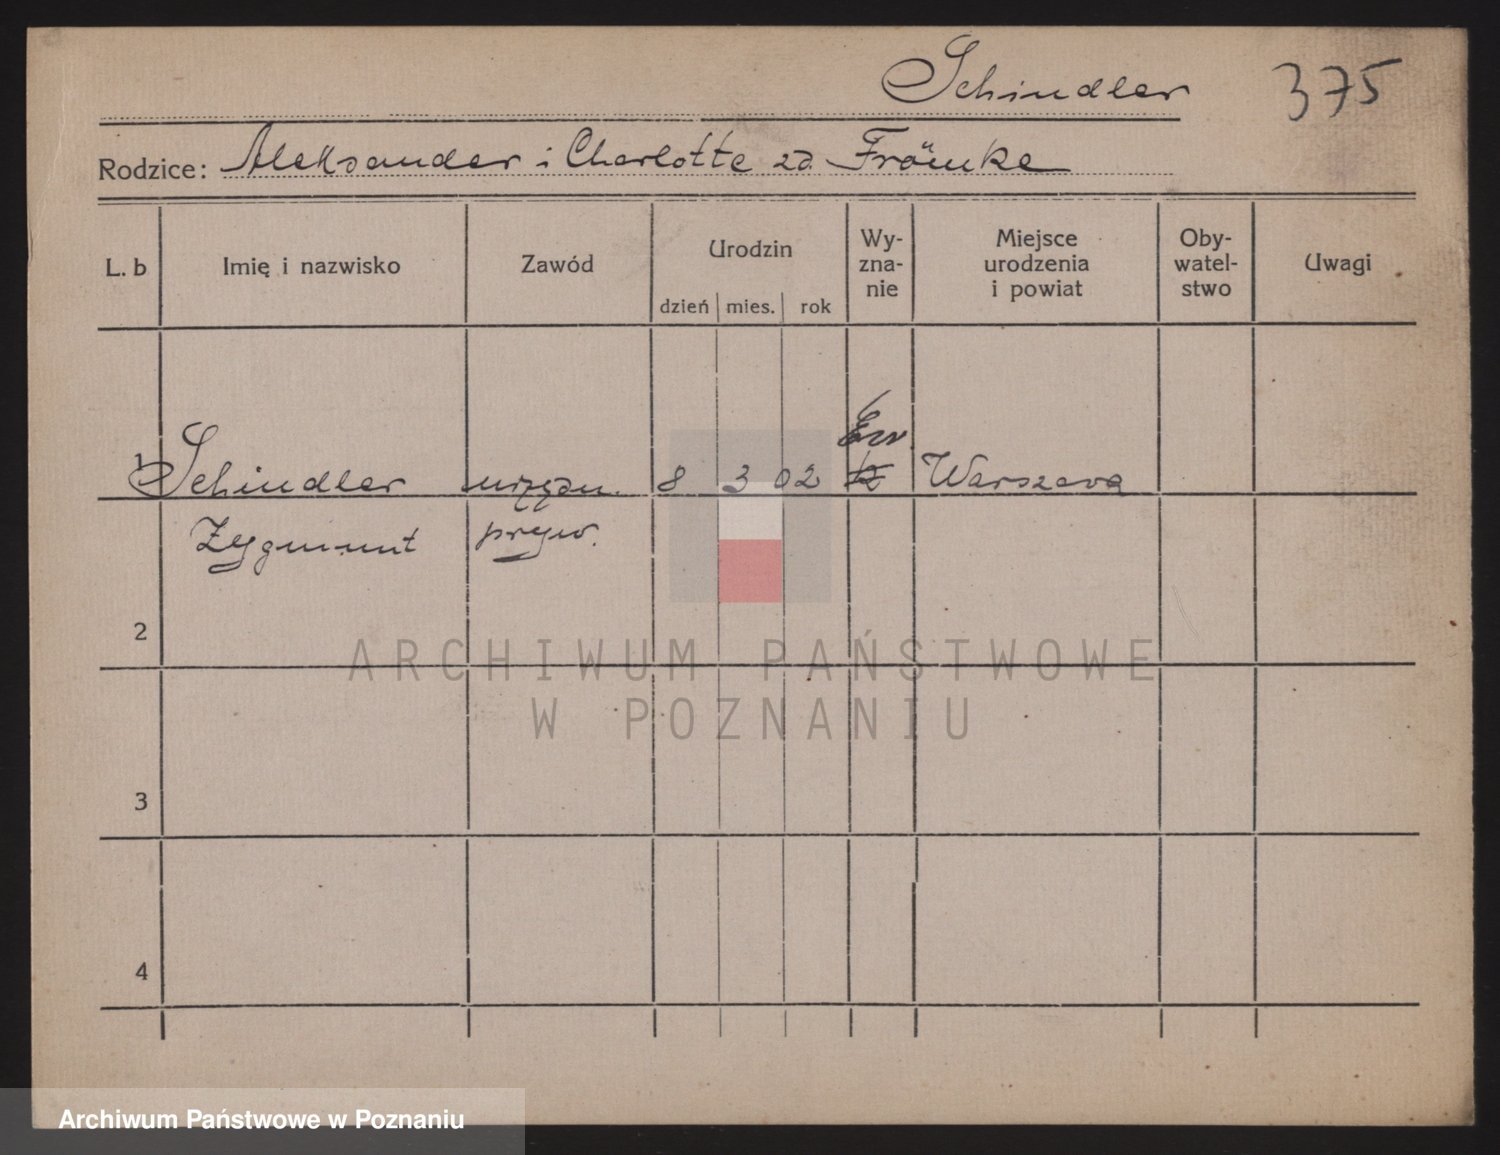 Schindler 375
Rodzice: Aleksander i Charlotte zd. Frömke
L. b Imię i nazwisko Zawód Urodzin Wy-zna-nie Miejsce urodzenia i powiat Oby-watel-stwo Uwagi
dzień mies. rok
Ew.
1 Schindler urzędn. 8 3 02 Warszawa
Zygmunt pryw.
2
ARCHIWUM PAŃSTWOWE
W POZNANIU
3
4
Archiwum Państwowe w Poznaniu